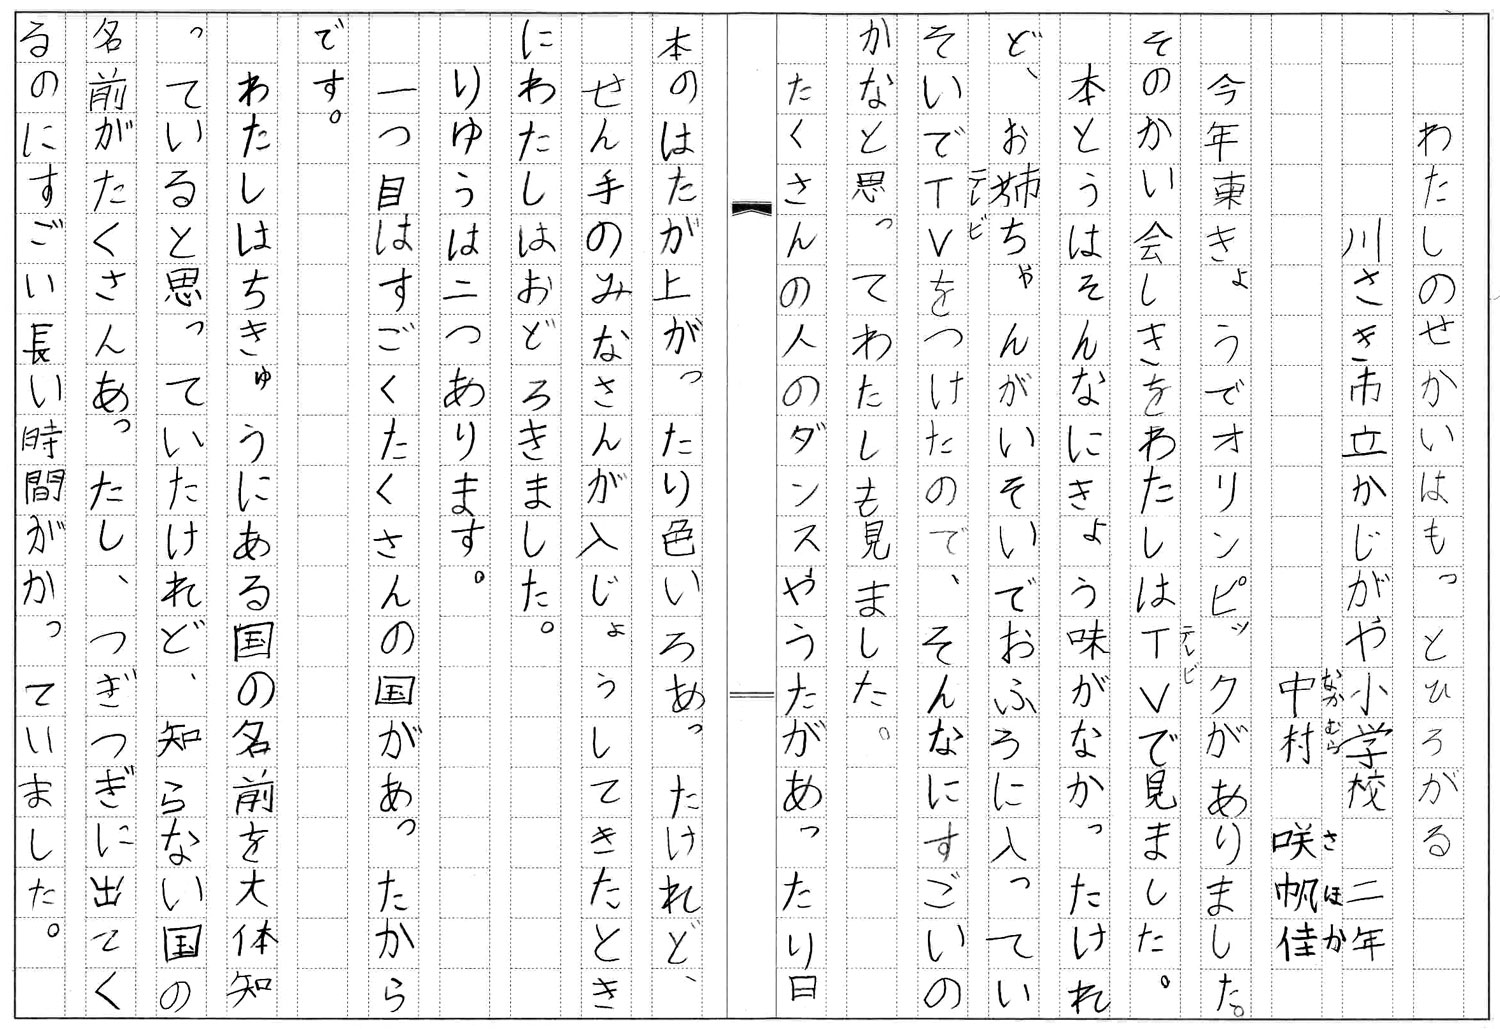 わたしのせかいはもっとひろがる
川さき市立かじがや小学校　二年
中村　咲帆佳
なかむら　さほか
今年東きょうでオリンピックがありました。
そのかい会しきをわたしはTVで見ました。
テレビ
本とうはそんなにきょう味がなかったけれ
ど、お姉ちゃんがいそいでおふろに入ってい
そいでTVをつけたので、そんなにすごいの
テレビ
かなと思ってわたしも見ました。
たくさんの人のダンスやうたがあったり日
本のはたが上がったり色いろあったけれど、
せん手のみなさんが入じょうしてきたとき
にわたしはおどろきました。
りゆうは二つあります。
一つ目はすごくたくさんの国があったから
です。
わたしはちきゅうにある国の名前を大体知
っていると思っていたけれど、知らない国の
名前がたくさんあったし、つぎつぎに出てく
るのにすごい長い時間がかっていました。